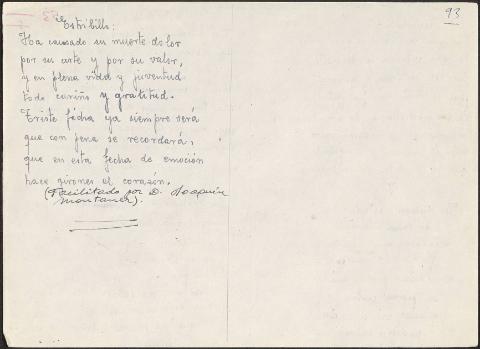 93
Estribillo:
Ha causado su muerte dolor
por su arte y por su valor,
y en plena vida y juventud
todo cariño y gratitud.
Triste fecha ya siempre será
que con pena se recordará,
que en esta fecha de emoción
hace girones el corazón.
(Facilitado por D. Joaquín
Montaner).